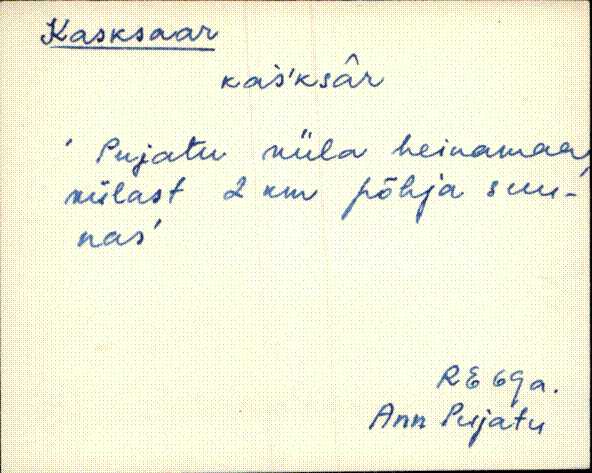 Kasksaar
kas'ksâr
' Pujatu küla heinamaa,
külast 2 km põhja suu-
nas'
RE 69a.
Ann Pujatu